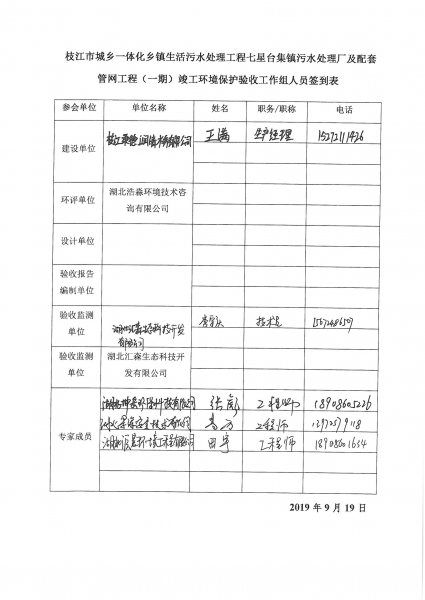 枝江市城乡一体化乡镇生活污水处理工程七星台集镇污水处理厂及配套
管网工程（一期）竣工环境保护验收工作组人员签到表
参会单位 单位名称 姓名 职务/职称 电话
建设单位 王满 生产经理 15272111426
环评单位 湖北浩淼环境技术咨
询有限公司
设计单位
验收报告
编制单位
验收监测
单位 技术员
有限公司
验收监测
单位 湖北汇森生态科技开
发有限公司
专家成员
张彪 工程师 18908605226
工程师
田宇 工程师 18908601634
2019 年 9 月 19 日